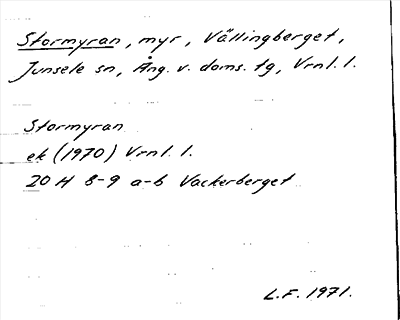 Stormyran, myr, Vällingberget,
Junsele sn, Ång. v. doms. tg, Vrnl. l.
Stormyran
ek (1970) Vrnl. l.
20 H 8-9 a-b Vackerberget
L.F. 1971.